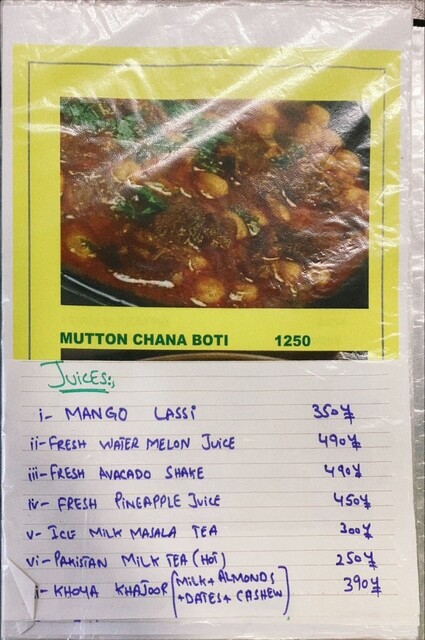 MUTTON CHANA BOTI 1250
JUICES:
i- MANGO LASSI 350¥
ii- FRESH WATER MELON JUICE 490¥
iii- FRESH AVACADO SHAKE 490¥
iv- FRESH PINEAPPLE JUICE 450¥
v- ICE MILK MASALA TEA 300¥
vi- PAKISTAN MILK TEA (HOT) 250¥
i- KHOYA KHAJOOR [MILK + ALMONDS 390¥
+ DATES + CASHEW]